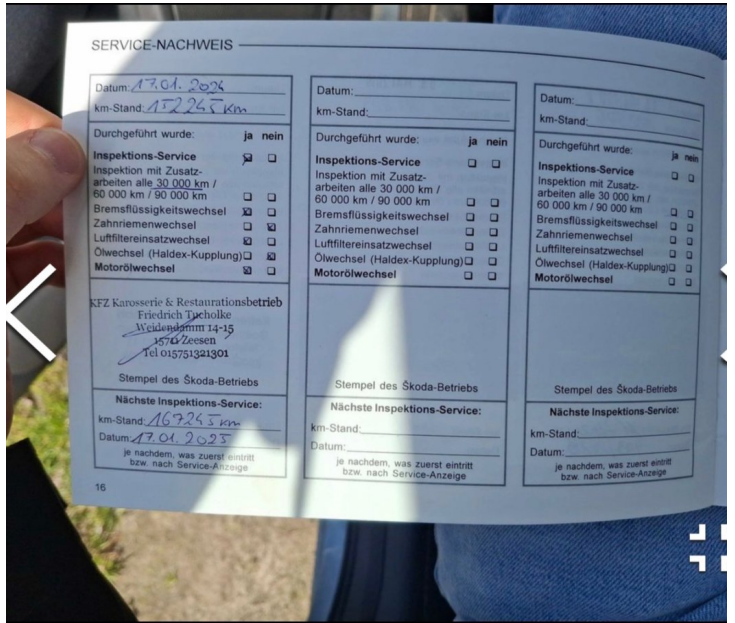 SERVICE-NACHWEIS
Datum: 17.01.2024
km-Stand: 152245 km
Durchgeführt wurde: ja nein
Inspektions-Service
Inspektion mit Zusatz-
arbeiten alle 30 000 km /
60 000 km / 90 000 km
Bremsflüssigkeitswechsel
Zahnriemenwechsel
Luftfiltereinsatzwechsel
Ölwechsel (Haldex-Kupplung)
Motorölwechsel
KFZ Karosserie & Restaurationsbetrieb
Friedrich Tucholke
Weidendamm 14-15
15741 Zeesen
Tel 015751321301
Stempel des Škoda-Betriebs
Nächste Inspektions-Service:
km-Stand: 167245 km
Datum: 17.01.2025
je nachdem, was zuerst eintritt
bzw. nach Service-Anzeige
16
Datum:
km-Stand:
Durchgeführt wurde: ja nein
Inspektions-Service
Inspektion mit Zusatz-
arbeiten alle 30 000 km /
60 000 km / 90 000 km
Bremsflüssigkeitswechsel
Zahnriemenwechsel
Luftfiltereinsatzwechsel
Ölwechsel (Haldex-Kupplung)
Motorölwechsel
Stempel des Škoda-Betriebs
Nächste Inspektions-Service:
km-Stand:
Datum:
je nachdem, was zuerst eintritt
bzw. nach Service-Anzeige
Datum:
km-Stand:
Durchgeführt wurde: ja nein
Inspektions-Service
Inspektion mit Zusatz-
arbeiten alle 30 000 km /
60 000 km / 90 000 km
Bremsflüssigkeitswechsel
Zahnriemenwechsel
Luftfiltereinsatzwechsel
Ölwechsel (Haldex-Kupplung)
Motorölwechsel
Stempel des Škoda-Betriebs
Nächste Inspektions-Service:
km-Stand:
Datum:
je nachdem, was zuerst eintritt
bzw. nach Service-Anzeige